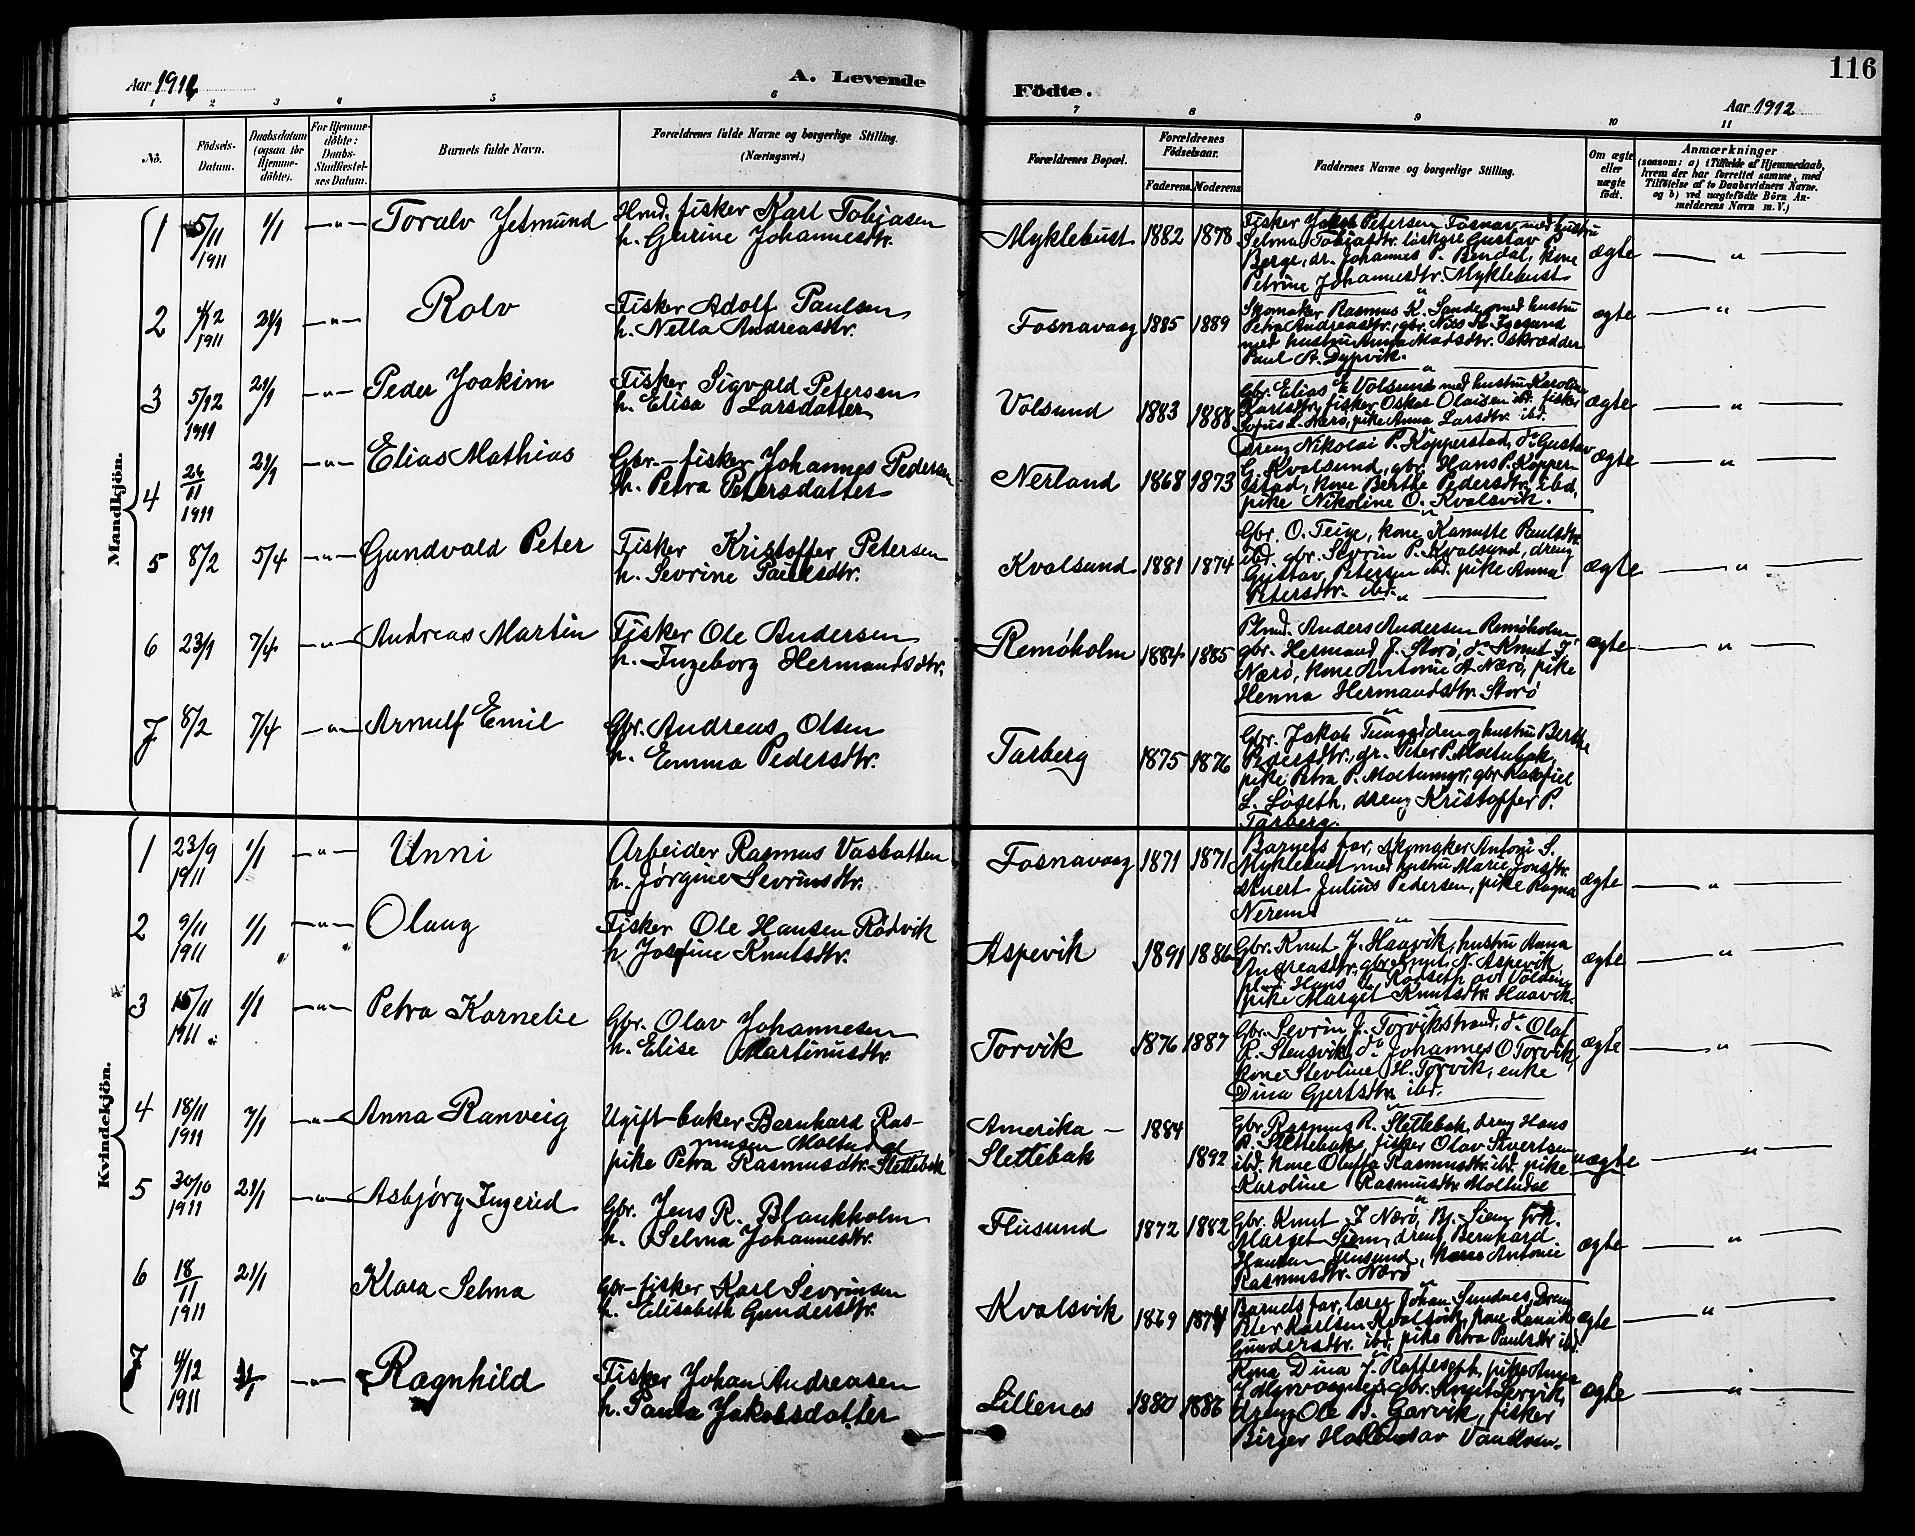 116
Aar 1912
A. Levende
Födte.
Aar 1912
1 2 3 4 5 6 7 8 9 10 11
No.
Födsels-
Datum.
Daabsdatum
(ogsaa for
Hjemme-
döbte).
For Hjemme-
döbte:
Daabs-
Stadfæstel-
ses Datum.
Barnets fulde Navn.
Forældrenes fulde Navne og borgerlige Stilling.
(Næringsvei.)
Forældrenes Bopæl.
Forældrenes
Födselsaar.
Faderens.
Moderens
Faddernes Navne og borgerlige Stilling.
Om ægte
eller
uægte
födt.
Anmærkninger
(saasom: a) i Tilfælde af Hjemmedaab,
hvem der har forrettet samme, med
Tilföielse af to Daabsvidners Navne.
og b) ved uægtefödte Börn An-
melderens Navn m. V.)
Mandkjön.
1 5/11 1911 1/1 —"— Toralv Jetmund
Hmd. fisker Karl Tobiasen
h. Gurine Johannesdtr.
Myklebust 1882 1878
Fisker Jakob Petersen Fosnav. med hustru
Selma Tobiasdtr. Gustav P.
Berge, dr. Johannes P. Bendal, kone
Petrine Johannesdtr. Myklebust
ægte — " —
2 4/12 1911 21/1 —"— Rolv
Fisker Adolf Paulsen
h. Nella Andreasdtr.
Fosnavaag 1885 1889
Skomaker Rasmus K. Sande med hustru
Petra Andreasdtr., gbr. Nils
med hustru Anna Madsdtr. skrædder
Paul A. Dypvik.
ægte — " —
3 5/12 1911 21/1 —"— Peder Joakim
Fisker Sigvald Petersen
h. Elisa Larsdatter
Volsund 1883 1888
Gbr. Elias Volsund med hustru Karoline
Karlsdtr, fisker Oskar Olaisen ibd. fisker
Sofus L. Nærø, pike Anna Larsdtr. ibd.
ægte — " —
4 26/11 1911 21/1 —"— Elias Mathias
Gbr. – fisker Johannes Pedersen
h. Petra Petersdatter
Nerland 1868 1873
Dreng Nikolai P. Kopperstad, do Gustav
G. Kvalsund, gbr. Hans P. Kopper-
stad, kone Berthe Pedersdtr. ibd,
pike Nikoline O. Kvalsvik.
ægte — " —
5 8/2 5/4 —"— Gundvald Peter
Fisker Kristoffer Petersen
h. Sevrine Paulsdtr.
Kvalsund 1881 1874
Gbr. O. Teige, kone Kanutte Paulsdtr.
ibd. gbr. Sevrin P. Kvalsund, dreng
Gustav Petersen ibd. pike Anna
Petersdtr. ibd.
ægte — " —
6 23/1 7/4 —"— Andreas Martin
Fisker Ole Andersen
h. Ingeborg Hermandsdtr.
Remøholm 1884 1885
Plmd. Anders Andersen Remøholm,
gbr. Hermand J. Storø, do Knut J.
Nærø, kone Antonie A. Nærø, pike
Henna Hermandsdtr. Storø
ægte — " —
7 8/2 7/4 —"— Arnulf Emil
Gbr. Andreas Olsen
h. Emma Pedersdtr.
Tarberg 1875 1876
Gbr. Jakob og hustru Berthe
Pedersdtr., dr. Peter P. Moltubak,
pike Petra P. Moltumyr, gbr.
L. Løseth, dreng Kristoffer P.
Tarberg.
Kvindekjön.
1 23/9 1911 1/1 —"— Unni
Arbeider Rasmus Vasbotten
h. Jørgine Sevrinsdtr.
Fosnavaag 1871 1871
Barnets far, skomaker Anton S.
Myklebust med hustru Marie Jonsdtr.
Julius Pedersen, pike Ragna
Nerem
ægte — " —
2 9/11 1911 1/1 —"— Olaug
Fisker Ole Hansen Rødvik
h Josefine Knutsdtr.
Aspevik 1891 1886
Gbr. Knut J. Haavik, hustru Anna
Andreasdtr. gbr Knut N. Aspevik
plmd Hans
pike Marget Knutsdtr. Haavik.
ægte — " —
3 15/11 1911 1/1 —"— Petra Kornelie
Gbr. Olav Johannesen
h. Elise Martinusdtr.
Torvik 1876 1887
Gbr. Sevrin J. Torvikstrand, do Olaf
R. Stensvik, do Johannes O Torvik,
kone Stevline H. Torvik, enke
Dina Gjertsdtr ibd.
ægte — " —
4 18/11 1911 7/1 —"— Anna Ranveig
Ugift – baker Bernhard Ras-
mussen Moltudal
pike Petra Rasmusdtr. Slettebak
Amerika –
Slettebak
1884
1892
Gbr. Rasmus R. Slettebak, dreng Hans
R. Slettebak, fisker Olav Sivertsen
ibd. kone Oluffa Rasmusdtr. ibd. pike
Karoline Rasmusdtr. Moltudal
uægte — " —
5 30/10 1911 21/1 —"— Asbjørg Ingerid
Gbr. Jens R. Blankholm
h. Selma Johannesdtr.
Flusund 1872 1882
Gbr. Knut J Nærø, Bj. Siem frk.
Marget Siem, dreng Bernhard
Hansen Flusund, kone Antonie
Rasmusdtr. Nærø
ægte — " —
6 18/11 1911 21/1 —"— Klara Selma
Gbr-fisker Karl Sevrinsen
h. Elisabeth Gundersdtr.
Kvalsvik 1869
Barnets far, lærer Johan Sundnes, Dreng
Peter Karlsen Kvalsvik, kone
Gundersdtr. ibd, pike Petra Paulsdtr ibd.
ægte — " —
7 4/12 1911 —"— Ragnhild
Fisker Johan Andreasen
h. Paula Jakobsdatter
Lillenes 1880 1886
Kona Dina J. pike Anna
gbr. Knut
dreng Ole B. Garvik, fisker
Birger
ægte — " —